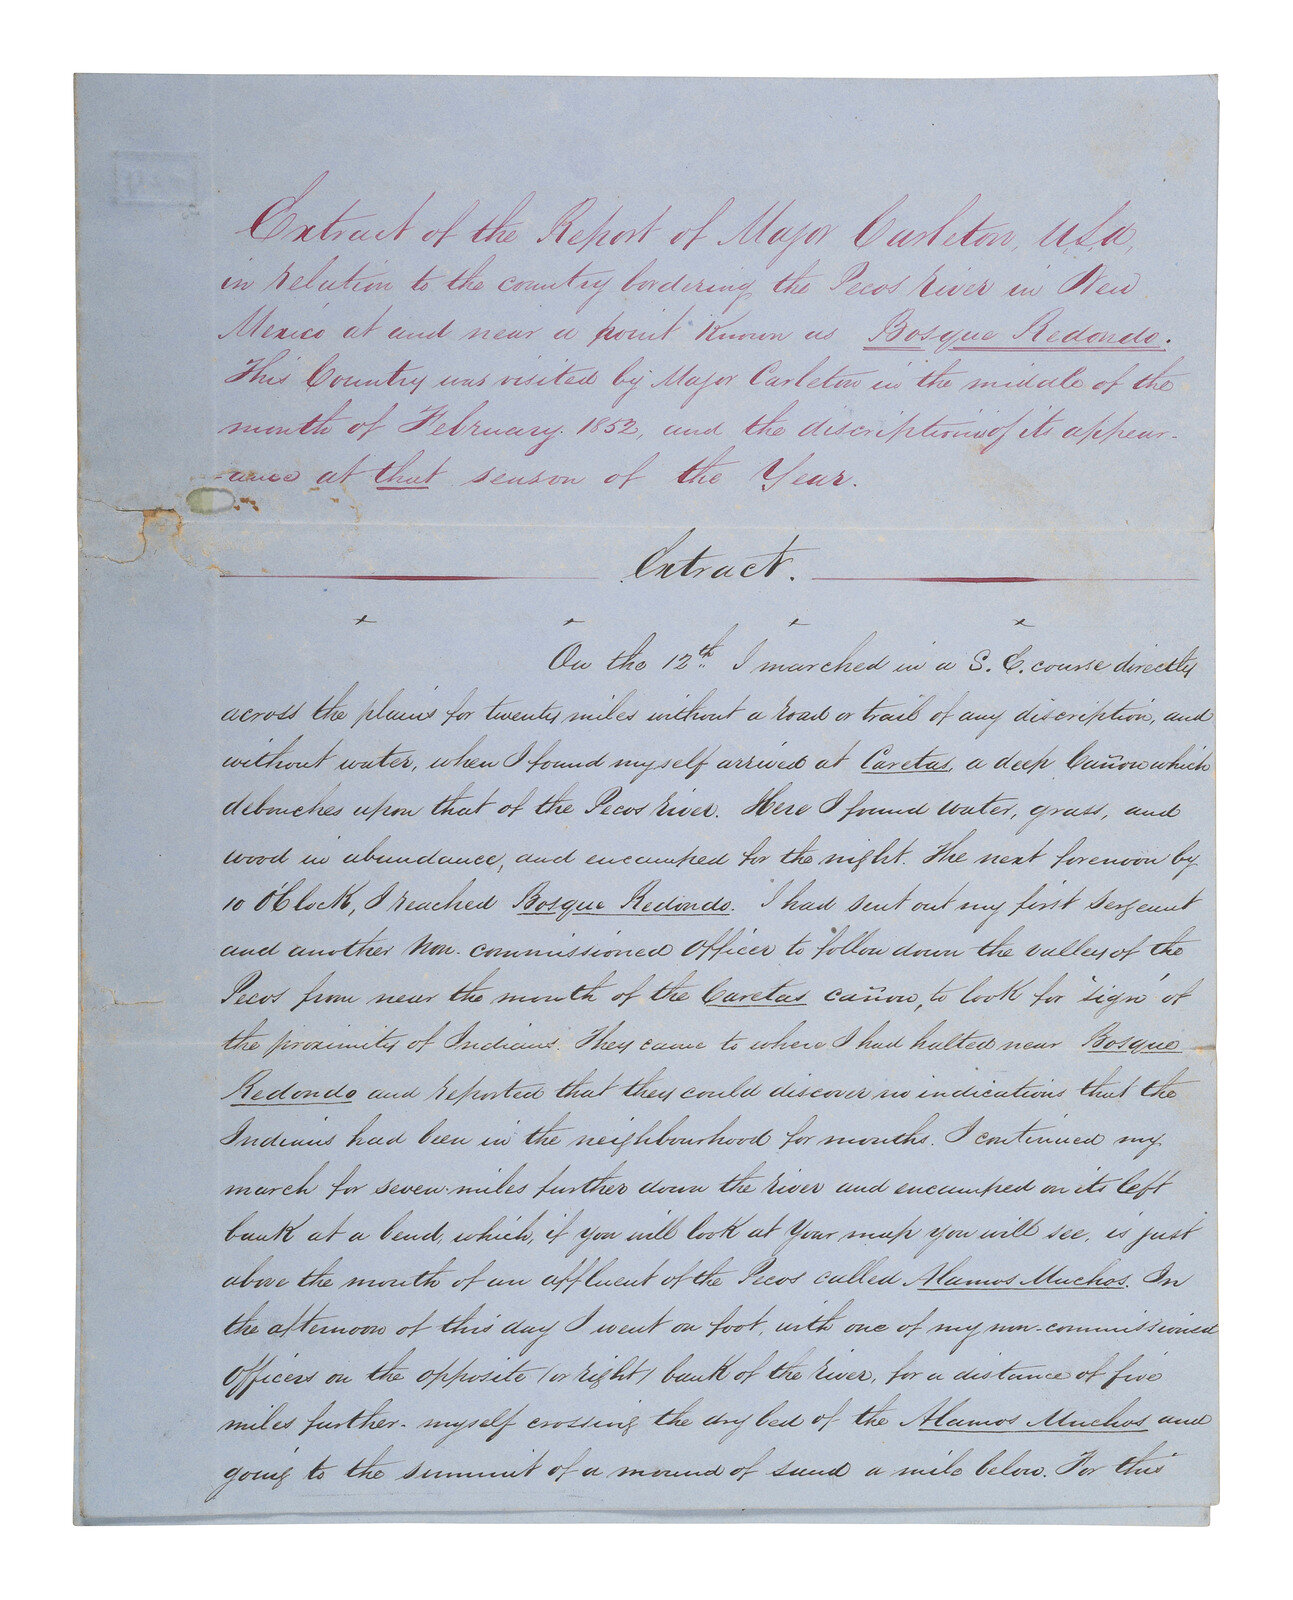 Extract of the Report of Major Carleton, U.S.A,
in relation to the country bordering the Pecos River in New
Mexico at and near a point Known as Bosque Redondo.
This Country was visited by Major Carleton in the middle of the
month of February 1852, and the discription is of its appear-
ance at that season of the Year.
Extract.
x x x x
On the 12th I marched in a S. E. course directly
across the plains for twenty miles without a road or trail of any discription, and
without water, when I found myself arrived at Caretas, a deep Cañon which
debouches upon that of the Pecos River. Here I found water, grass, and
wood in abundance, and encamped for the night. The next forenoon by
10 O'Clock, I reached Bosque Redondo. I had sent out my first Sergeant
and another Non-commissioned Officer to follow down the valley of the
Pecos from near the mouth of the Caretas cañon, to look for "sign" of
the proximity of Indians. They came to where I had halted near Bosque
Redondo and reported that they could discover no indications that the
Indians had been in the neighbourhood for months. I continued my
march for seven miles further down the river and encamped on its left
bank at a bend, which, if you will look at Your map you will see, is just
above the mouth of an affluent of the Pecos called Alamos Muchos. In
the afternoon of this day I went on foot, with one of my non-commissioned
Officers on the opposite (or right) bank of the river, for a distance of five
miles further - myself crossing the dry bed of the Alamos Muchos and
going to the summit of a mound of sand a mile below. For this